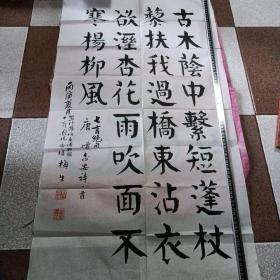 古木蔭中繫短蓬杖
藜扶我過橋東沾衣
欲溼杏花雨吹面不
寒楊柳風
七言絕句
唐 僧志安詩一首
丙
梅生